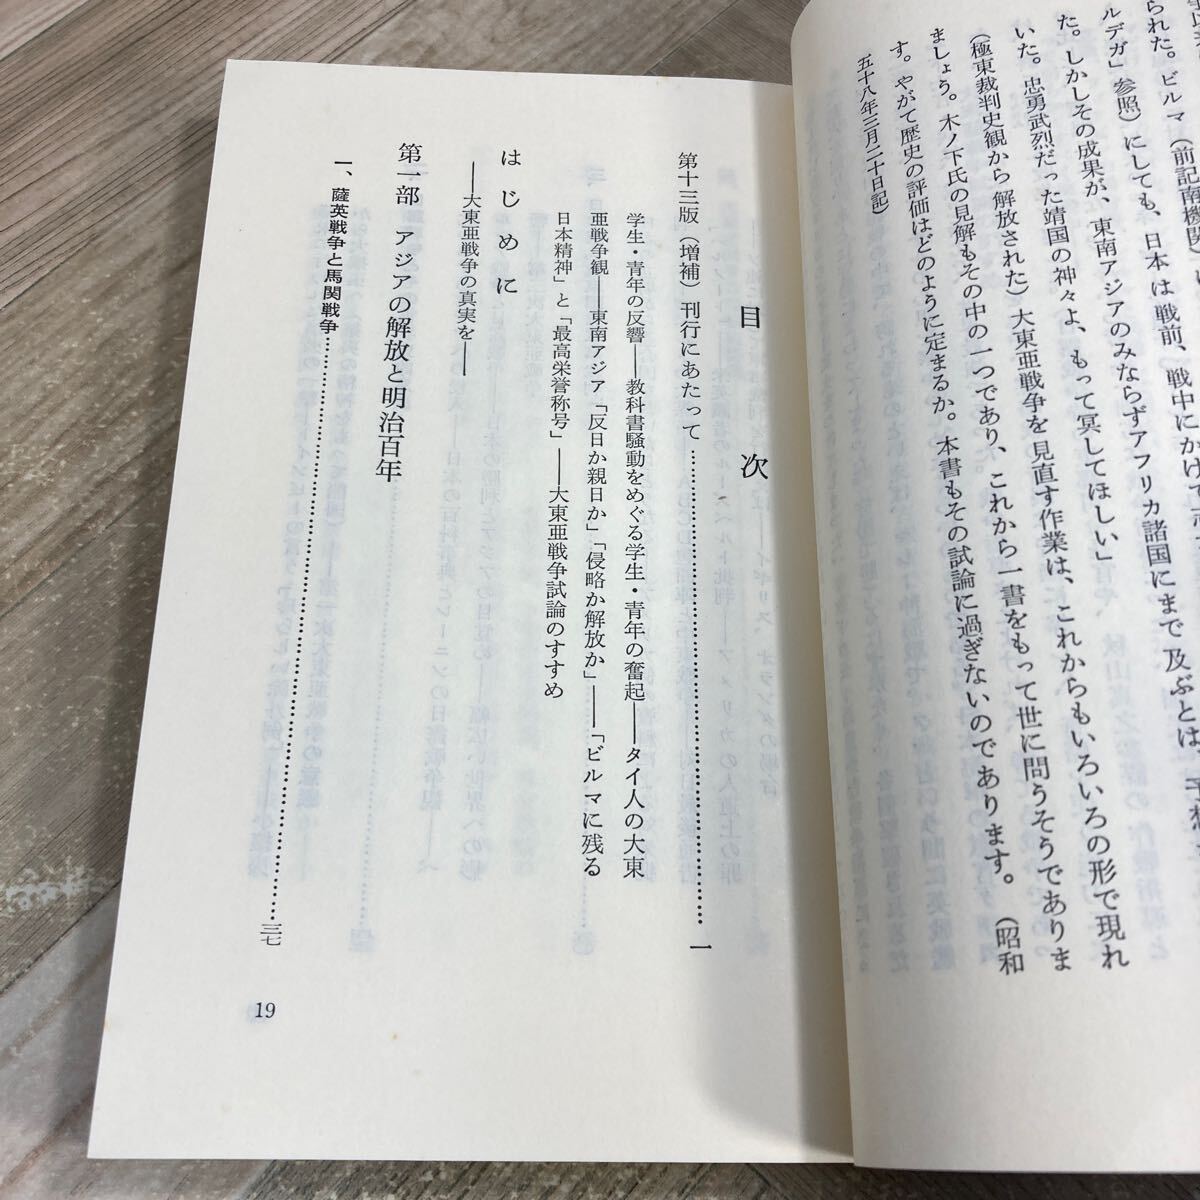 られた。ビルマ(前記南機関)に
ルデガ」参照)にしても、日本は戦前、戦中にかけて
た。しかしその成果が、東南アジアのみならずアフリカ諸国にまで及ぶとは、
いた。忠勇武烈だった靖国の神々よ、もって冥してほしい」
(極東裁判史観から解放された)大東亜戦争を見直す作業は、これからもいろいろの形で現れ
ましょう。木ノ下氏の見解もその中の一つであり、これから一書をもって世に問うそうでありま
す。やがて歴史の評価はどのように定まるか。本書もその試論に過ぎないのであります。 (昭和
五十八年三月二十日記)
目 次
第十三版(増補)刊行にあたって……………………一
学生・青年の反響――教科書騒動をめぐる学生・青年の奮起――タイ人の大東
亜戦争観――東南アジア「反日か親日か」「侵略か解放か」――「ビルマに残る
日本精神」と「最高栄誉称号」――大東亜戦争試論のすすめ
はじめに
――大東亜戦争の真実を――
第一部 アジアの解放と明治百年
一、薩英戦争と馬関戦争……………………三七
19